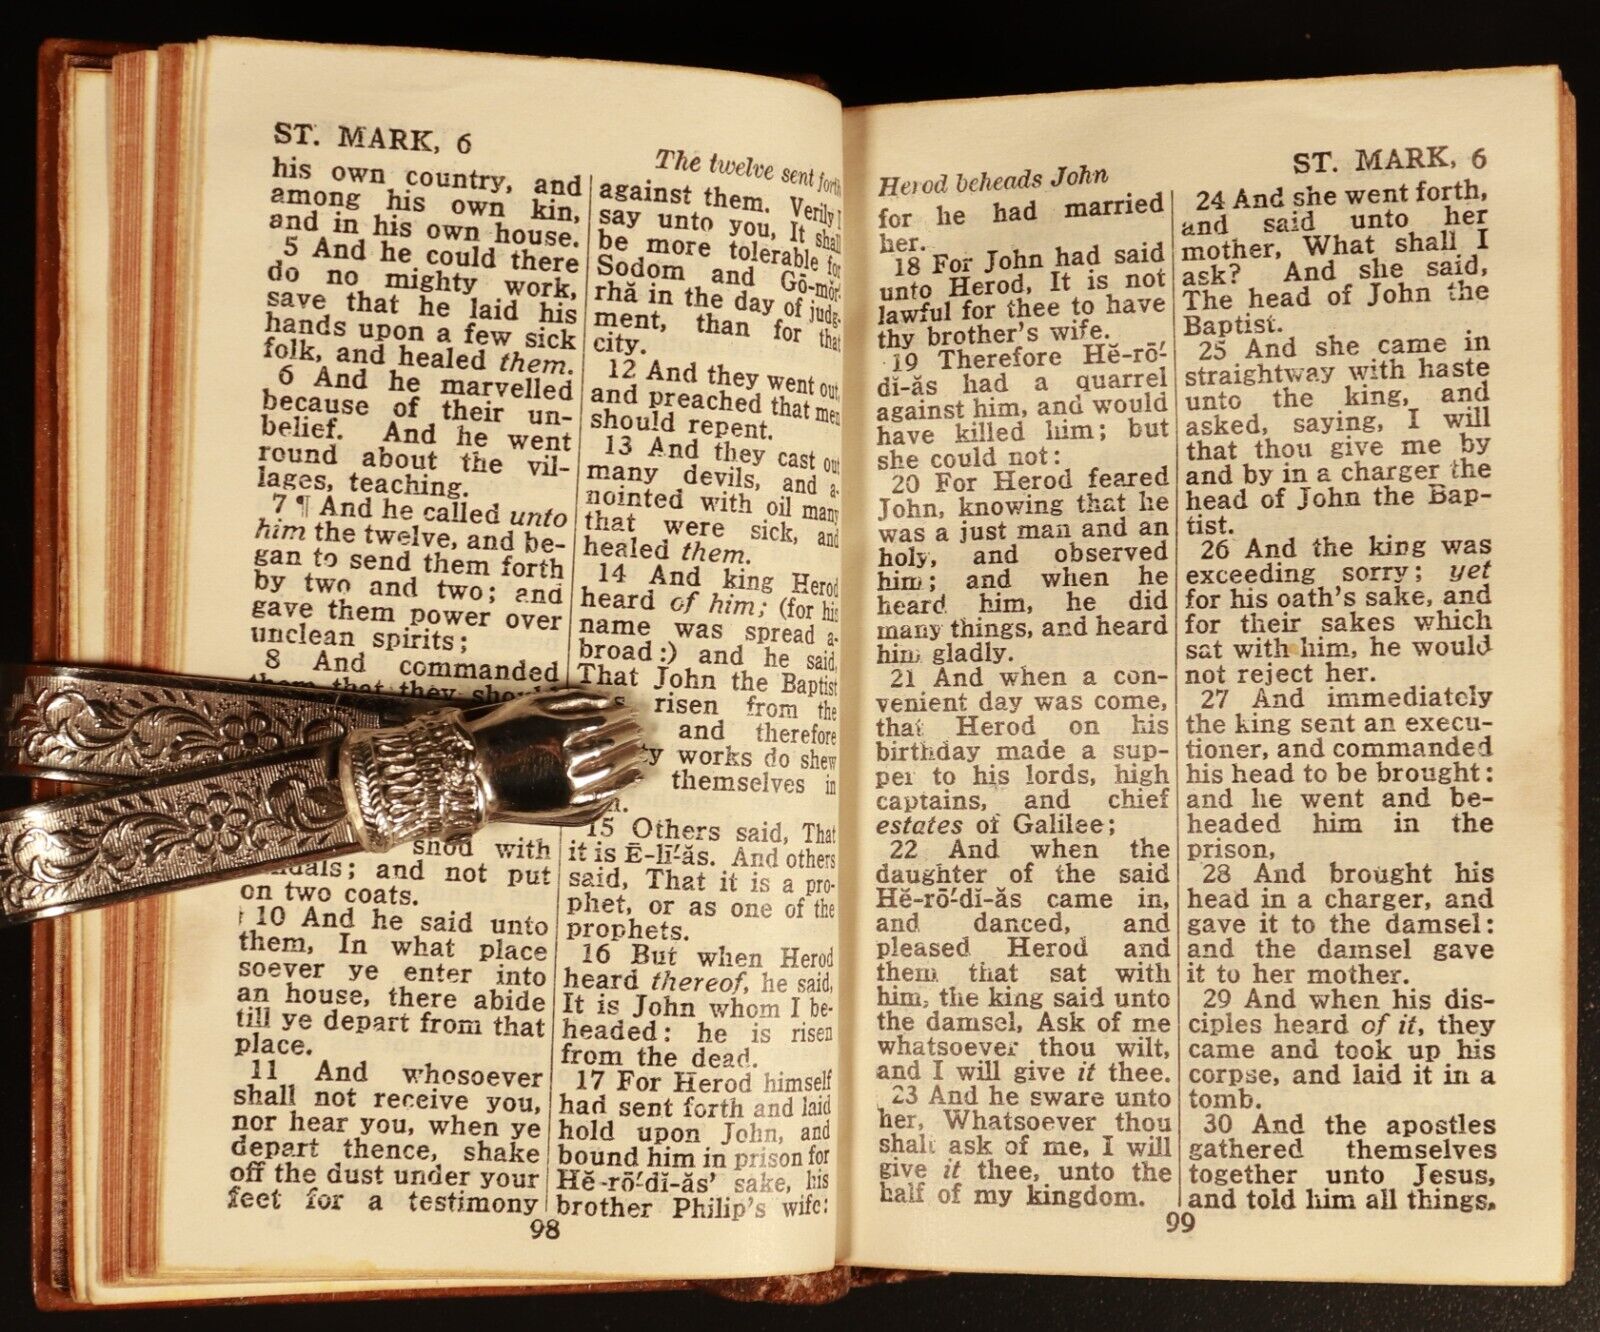 ST. MARK, 6
The twelve sent forth
his own country, and
among his own kin,
and in his own house.
5 And he could there
do no mighty work,
save that he laid his
hands upon a few sick
folk, and healed them.
6 And he marvelled
because of their un-
belief. And he went
round about the vil-
lages, teaching.
7 ¶ And he called unto
him the twelve, and be-
gan to send them forth
by two and two; and
gave them power over
unclean spirits;
8 And commanded
them that they should
shod with
sandals; and not put
on two coats.
10 And he said unto
them, In what place
soever ye enter into
an house, there abide
till ye depart from that
place.
11 And whosoever
shall not receive you,
nor hear you, when ye
depart thence, shake
off the dust under your
feet for a testimony
against them. Verily I
say unto you, It shall
be more tolerable for
Sodom and Gō-mŏr′-
rhă in the day of judg-
ment, than for that
city.
12 And they went out,
and preached that men
should repent.
13 And they cast out
many devils, and a-
nointed with oil many
that were sick, and
healed them.
14 And king Herod
heard of him; (for his
name was spread a-
broad:) and he said,
That John the Baptist
risen from the
and therefore
works do shew
themselves in
15 Others said, That
it is Ē-lī′-ăs. And others
said, That it is a pro-
phet, or as one of the
prophets.
16 But when Herod
heard thereof, he said,
It is John whom I be-
headed: he is risen
from the dead.
17 For Herod himself
had sent forth and laid
hold upon John, and
bound him in prison for
Hĕ-rō′-dĭ-ăs' sake, his
brother Philip's wife:
98
Herod beheads John
ST. MARK, 6
for he had married
her.
18 For John had said
unto Herod, It is not
lawful for thee to have
thy brother's wife.
19 Therefore Hĕ-rō′-
dĭ-ăs had a quarrel
against him, and would
have killed him; but
she could not:
20 For Herod feared
John, knowing that he
was a just man and an
holy, and observed
him; and when he
heard him, he did
many things, and heard
him gladly.
21 And when a con-
venient day was come,
that Herod on his
birthday made a sup-
per to his lords, high
captains, and chief
estates of Galilee;
22 And when the
daughter of the said
Hĕ-rō′-dĭ-ăs came in,
and danced, and
pleased Herod and
them that sat with
him, the king said unto
the damsel, Ask of me
whatsoever thou wilt,
and I will give it thee.
23 And he sware unto
her, Whatsoever thou
shalt ask of me, I will
give it thee, unto the
half of my kingdom.
24 And she went forth,
and said unto her
mother, What shall I
ask? And she said,
The head of John the
Baptist.
25 And she came in
straightway with haste
unto the king, and
asked, saying, I will
that thou give me by
and by in a charger the
head of John the Bap-
tist.
26 And the king was
exceeding sorry; yet
for his oath's sake, and
for their sakes which
sat with him, he would
not reject her.
27 And immediately
the king sent an execu-
tioner, and commanded
his head to be brought:
and he went and be-
headed him in the
prison,
28 And brought his
head in a charger, and
gave it to the damsel:
and the damsel gave
it to her mother.
29 And when his dis-
ciples heard of it, they
came and took up his
corpse, and laid it in a
tomb.
30 And the apostles
gathered themselves
together unto Jesus,
and told him all things,
99